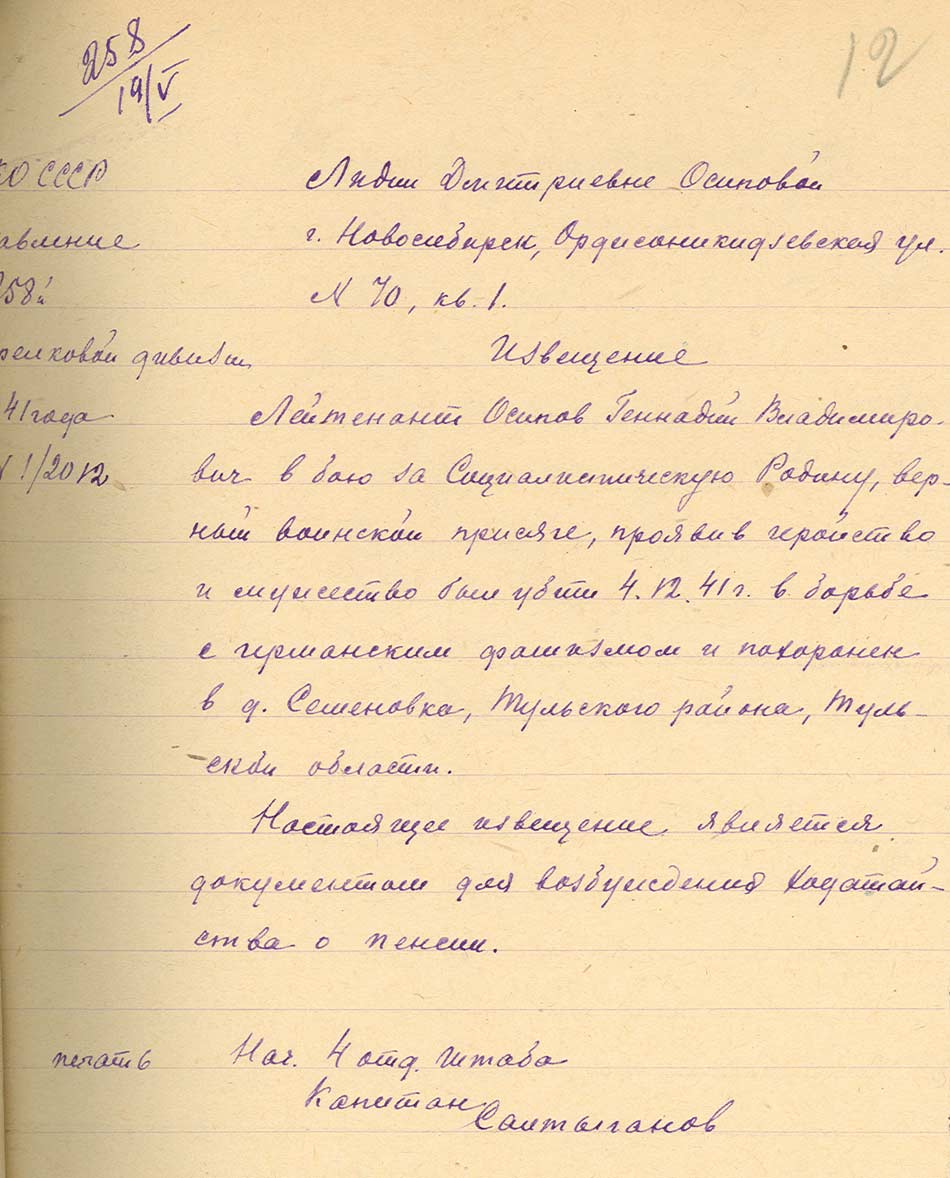 258
19/V
12
КО СССР
Лидии Дмитриевне Осиповой
авление
г. Новосибирск, Орджоникидзевская ул.
258й
N 70, кв. 1.
релковой дивизии
Извещение
41 года
Лейтенант Осипов Геннадий Владимиро-
N 1/2012
вич в бою за Социалистическую Родину, вер-
ный воинской присяге, проявив геройство
и мужество был убит 4.12.41 г. в борьбе
с германским фашизмом и похоронен
в д. Семеновка, Тульского района, Туль-
ской области.
Настоящее извещение является
документом для возбуждения ходатай-
ства о пенсии.
печать
Нач. 4 отд. штаба
Капитан
Салтыганов